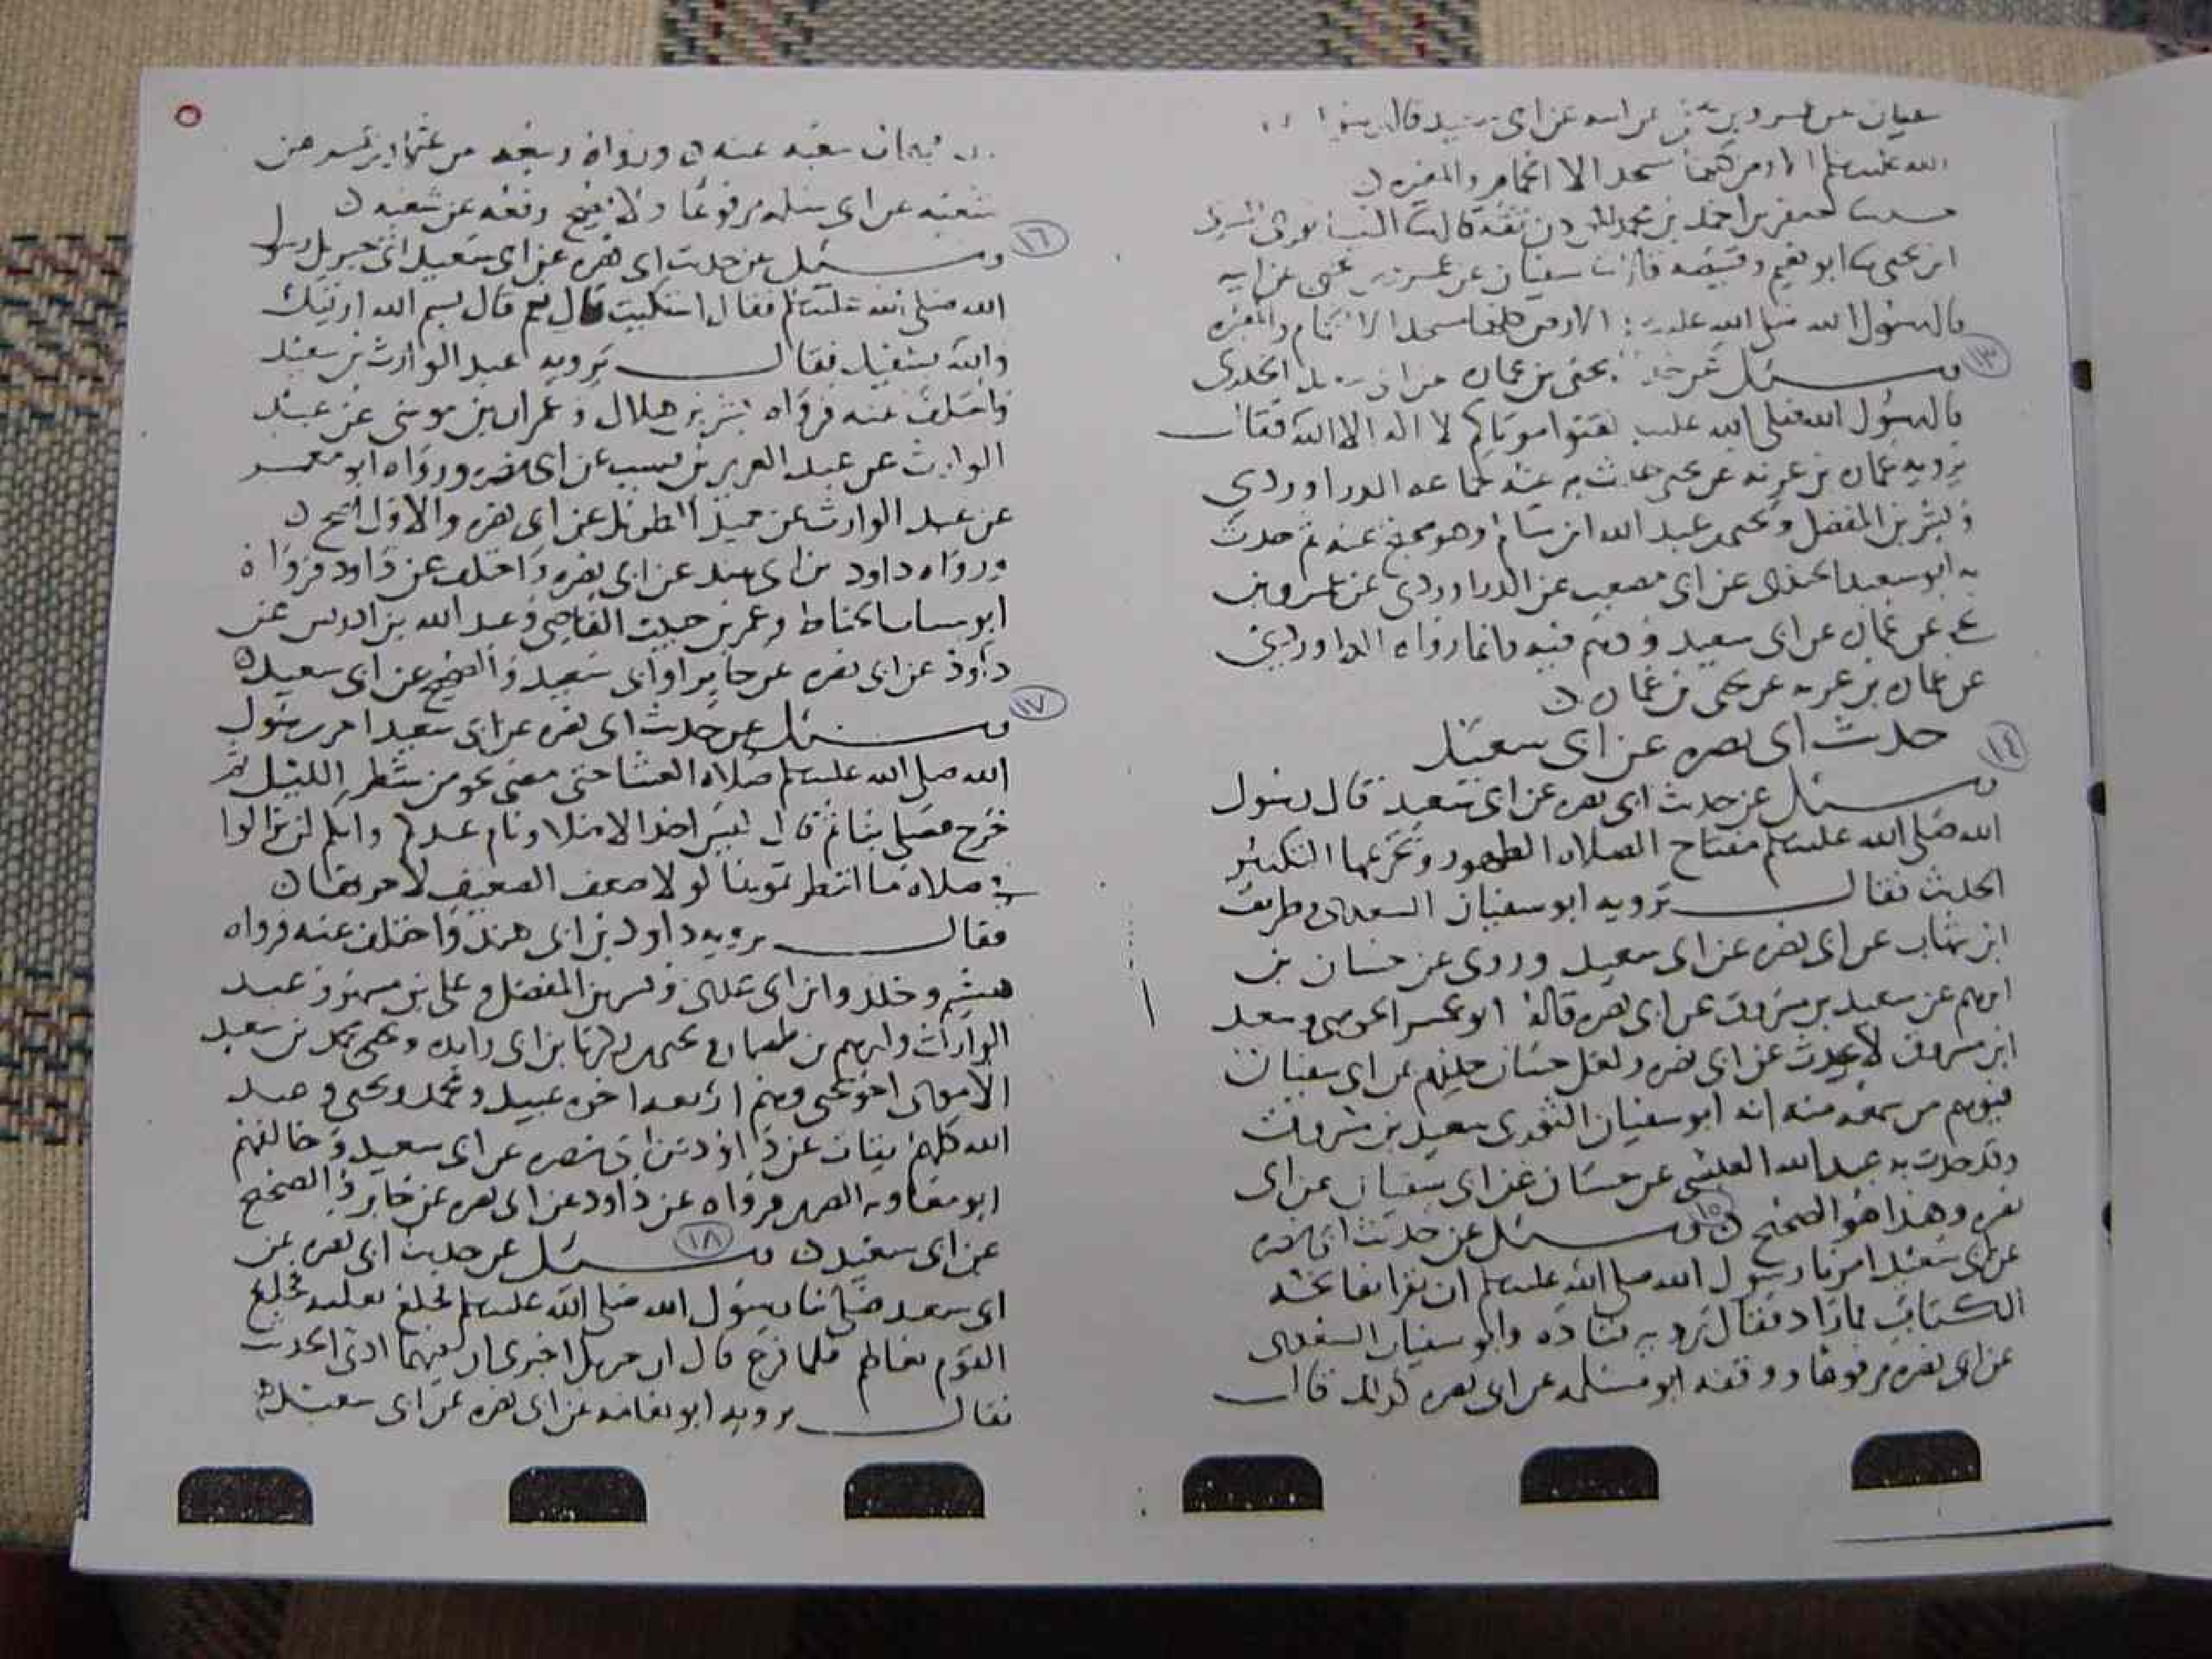 سفيان عن عمرو بن يحيى عن ابيه عن ابي سعيد قال
الله عليه وسلم الارض كلها مسجد الا الحمام والمقبرة
حدثنا جعفر بن احمد بن محمد ثقة قال ثنا السري
ابن يحيى ثنا ابو نعيم وقبيصة قالا ثنا سفيان عن عمرو بن يحيى عن ابيه
قال رسول الله صلى الله عليه الارض كلها مسجد الا الحمام والمقبرة
١٣
وسئل عن حديث يحيى بن عمارة عن ابي سعيد الخدري
قال رسول الله صلى الله عليه لقنوا موتاكم لا اله الا الله فقال
يرويه عمارة بن غزية عن يحيى حدث به عنه جماعة الدراوردي
وبشر بن المفضل و عبد الله ابن وهو صحيح عنه ثم حدث
به ابو سعيد عن ابي مصعب عن الدراوردي عن عمرو بن
عن عمارة عن ابي سعيد ووهم فيه وانما رواه الدراوردي
عن عمارة بن غزية عن يحيى بن عمارة
١٤
حديث ابي نضرة عن ابي سعيد
وسئل عن حديث ابي نضرة عن ابي سعيد قال رسول
الله صلى الله عليه وسلم مفتاح الصلاة الطهور وتحريمها التكبير
الحديث فقال يرويه ابو سفيان السعدي طريف
ابن شهاب عن ابي نضرة عن ابي سعيد وروى عن حسان بن
ابرهيم عن سعيد بن مسروق عن ابي نضرة قاله ابو عمر الحوضي وسعيد
ابن مسروق لا يحدث عن ابي نضرة ولعل حسان حدثهم عن ابي سفيان
فتوهم من سمعه منه انه ابو سفيان الثوري سعيد بن مسروق
وقد حدث به عبيد الله العيشي عن حسان عن ابي سفيان عن ابي
نضرة وهذا هو الصحيح ١٥ وسئل عن حديث ابي نضرة
عن ابي سعيد امرنا رسول الله صلى الله عليه وسلم ان نقرا بفاتحة
الكتاب فما زاد فقال يرويه قتادة وابو سفيان السعدي
عن ابي نضرة مرفوعا ووقفه ابو مسلمة عن ابي نضرة كذلك قال
شعبة عنه ورواه عن عثمان بن عمر عن
شعبة عن ابي مسلمة مرفوعا ولا يصح رفعه عن شعبة
١٦
وسئل عن حديث ابي نضرة عن ابي سعيد اتى جبريل رسول
الله صلى الله عليه وسلم فقال اشتكيت قال نعم قال بسم الله ارقيك
والله يشفيك فقال يرويه عبد الوارث بن سعيد
واختلف عنه فرواه بشر بن هلال وعمران بن موسى عن عبد
الوارث عن عبد العزيز بن صهيب عن ابي نضرة ورواه ابو معمر
عن عبد الوارث عن حميد الطويل عن ابي نضرة والاول اصح
ورواه داود بن ابي هند عن ابي نضرة واختلف عن داود فرواه
ابو شهاب الحناط وعمر بن حبيب القاضي وعبد الله بن ادريس عن
داود عن ابي نضرة عن جابر او ابي سعيد والصحيح عن ابي سعيد
١٧
وسئل عن حديث ابي نضرة عن ابي سعيد اخر رسول
الله صلى الله عليه وسلم صلاة العشا حتى مضى نحو من شطر الليل ثم
خرج فصلى بنا ثم قال وانكم لن تزالوا
في صلاة ما انتظرتموها لولا ضعف الضعيف لاخرتها
فقال يرويه داود بن ابي هند واختلف عنه فرواه
هشيم وخالد وابن ابي عدي وبشر بن المفضل وعلي بن مسهر وعبد
الوارث وابرهيم بن طهمان ويحيى بن زكريا بن ابي زايدة ومحمد بن سعيد
الاموي اخو يحيى وهم اربعة اخوة عبيد ومحمد ويحيى وعبد
الله كلهم ثقات عن داود عن ابي نضرة عن ابي سعيد وخالفهم
ابو معاوية الضرير فرواه عن داود عن ابي نضرة عن جابر والصحيح
عن ابي سعيد ١٨ وسئل عن حديث ابي نضرة عن
ابي سعيد صلى بنا رسول الله صلى الله عليه وسلم فخلع نعليه فخلع
القوم نعالهم فلما فرغ قال ان جبريل اخبرني ان فيهما اذى الحديث
فقال يرويه ابو نعامة عن ابي نضرة عن ابي سعيد